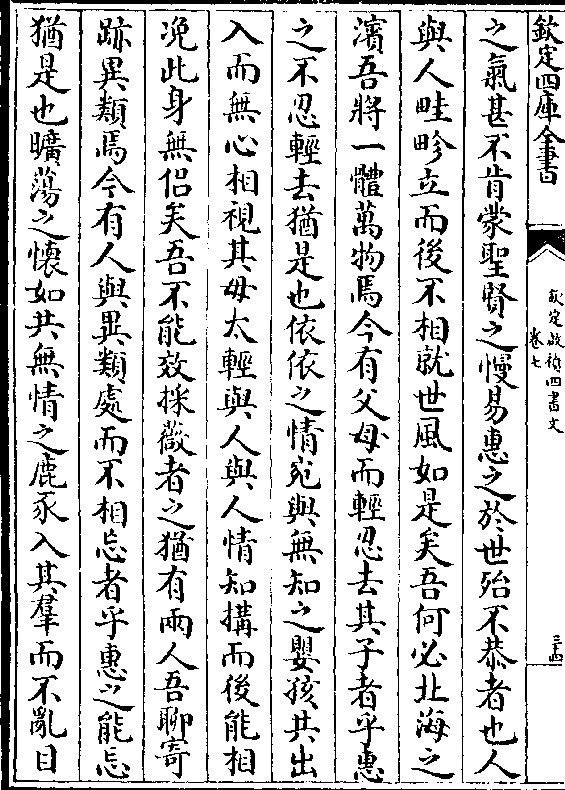 欽定四庫全書
欽定啟禎四書文
卷七
三十四
之氣甚不肯蒙聖賢之慢易惠之於世殆不恭者也人
與人畦畛立而後不相就世風如是矣吾何必北海之
濱吾將一體萬物焉今有父母而輕忍去其子者乎惠
之不忍輕去猶是也依依之情宛與無知之嬰孩共出
入而無心相視其毋太輕與人與人情知搆而後能相
浼此身無侣矣吾不能效採薇者之猶有兩人吾聊寄
跡異類焉今有人與異類處而不相忘者乎惠之能忘
猶是也曠蕩之懷如共無情之鹿豕入其羣而不亂目